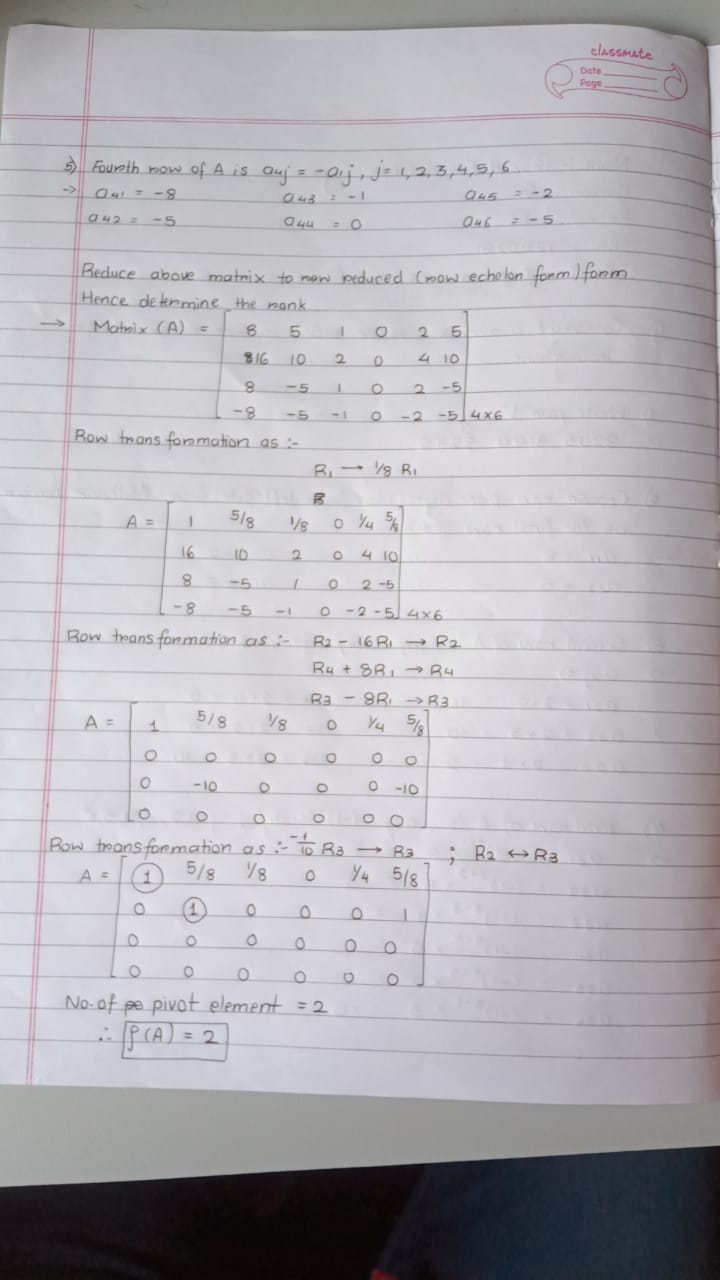 classmate
Date
Page
5) Fourth row of A is a4j = -a1j, j = 1, 2, 3, 4, 5, 6
→ a41 = -8 a43 = -1 a45 = -2
a42 = -5 a44 = 0 a46 = -5
Reduce above matrix to row reduced (row echelon form) form
Hence determine the rank
→ Matrix (A) = [ 8 5 1 0 2 5
16 10 2 0 4 10
8 -5 1 0 2 -5
-8 -5 -1 0 -2 -5 ] 4×6
Row transformation as :-
R1 → 1/8 R1
A = [ 1 5/8 1/8 0 1/4 5/8
16 10 2 0 4 10
8 -5 1 0 2 -5
-8 -5 -1 0 -2 -5 ] 4×6
Row transformation as :- R2 - 16R1 → R2
R4 + 8R1 → R4
R3 - 8R1 → R3
A = [ 1 5/8 1/8 0 1/4 5/8
0 0 0 0 0 0
0 -10 0 0 0 -10
0 0 0 0 0 0 ]
Row transformation as :- -1/10 R3 → R3 ; R2 ↔ R3
A = [ 1 5/8 1/8 0 1/4 5/8
0 1 0 0 0 1
0 0 0 0 0 0
0 0 0 0 0 0 ]
No. of pivot element = 2
∴ ρ(A) = 2